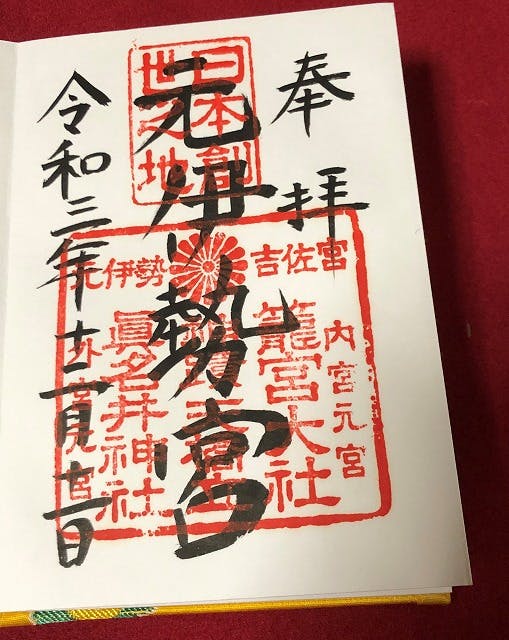 奉拝
日本創
世之地
元伊勢宮
元伊勢
吉佐宮
内宮元宮
籠宮大社
眞名井神社
外宮元宮
令和三年十二月
日